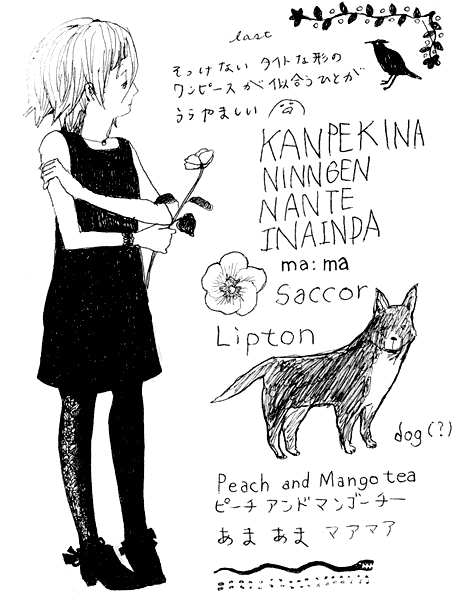 last
そっけない タイトな形の
ワンピースが似合うひとが
うらやましい
KANPEKINA
NINNGEN
NANTE
INAINDA
ma:ma
Saccor
Lipton
dog(?)
Peach and Mango tea
ピーチ アンドマンゴーチー
あま あま マアマア